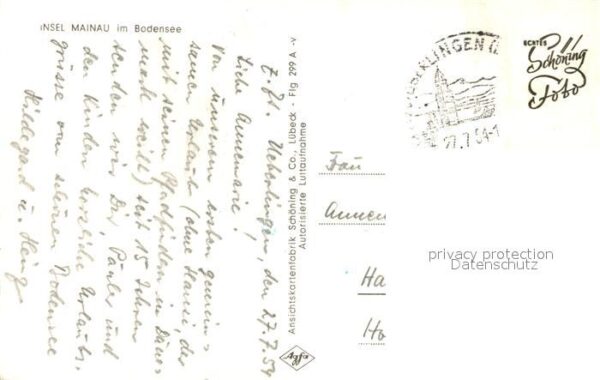 INSEL MAINAU im Bodensee
z. Zt. Ueberlingen, den 27.7.54
Liebe Annemarie!
Von unserem ersten gemein-
samen Urlaub (ohne Hansi, der
mit seinen Pfadfindern in Däne-
mark weilt) seit 15 Jahren
senden wir Dir, Paul und
den Kindern herzliche Urlaubs-
grüsse vom schönen Bodensee
Hildegard u. Heinz
Ansichtskartenfabrik Schöning & Co., Lübeck - Flg 299 A -v
Autorisierte Luftaufnahme
Agfa
27.7.54-1
ECHTES
Schöning
Foto
Frau
Annem
Ha
Ho
privacy protection
Datenschutz